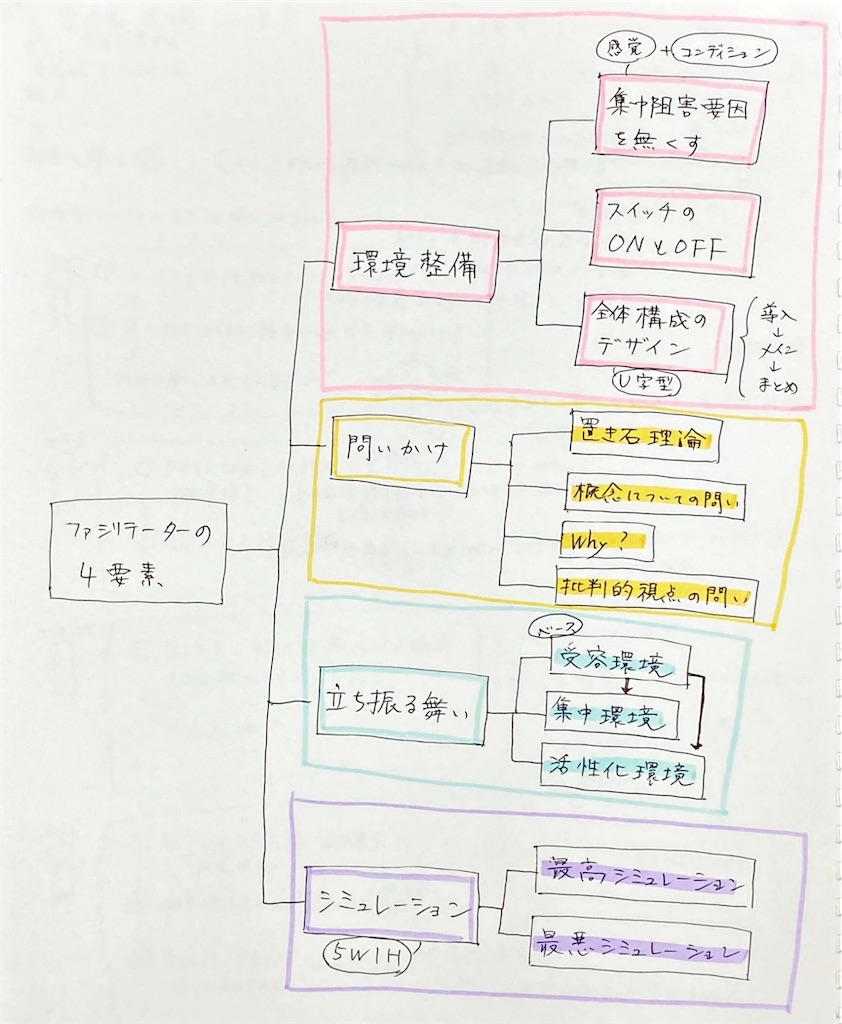 感覚 + コンディション
集中阻害要因
を無くす
スイッチの
ONとOFF
環境整備
全体構成の
デザイン
U字型
導入
↓
メイン
↓
まとめ
問いかけ
置き石理論
概念についての問い
Why?
批判的視点の問い
ファシリテーターの
4要素
立ち振る舞い
ベース
受容環境
集中環境
活性化環境
シミュレーション
5W1H
最高シミュレーション
最悪シミュレーション